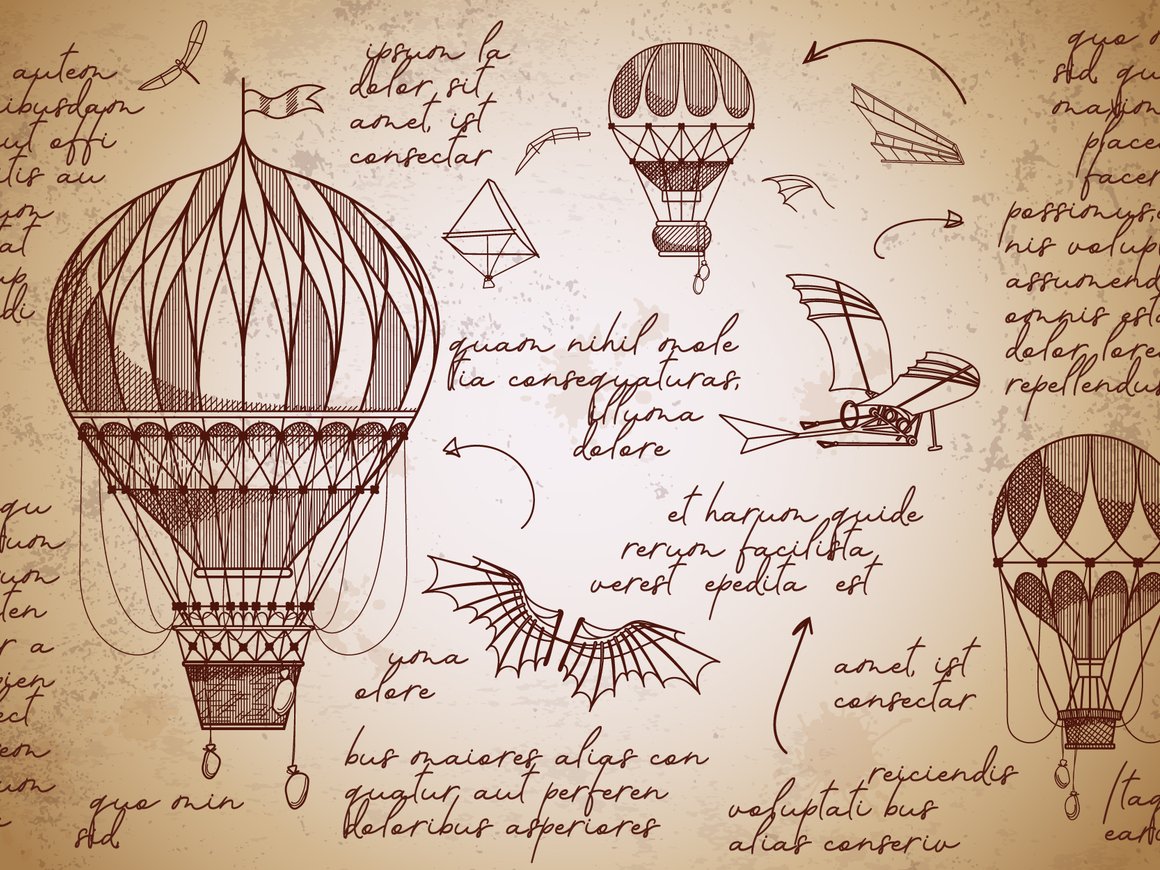 autem
ibusdam
ut offi
itis au
um
at
up
di
ipsum la
dolor sit
amet, ist
consectar
quo
sid qu
maxim
place
facer
possimus,
nis volup
assumend
omnis est
dolor lore
repellendus
quam nihil mole
tia consequaturas,
illuma
dolore
et harum quide
rerum facilista
verest epedita est
qu
um
um
ten
r a
pien
ect
em
um
uma
olore
amet, ist
consectar
bus maiores alias con
quatur aut perferen
doloribus asperiores
quo min
sid
reiciendis
voluptati bus
alias conseriv
Itaq
ear